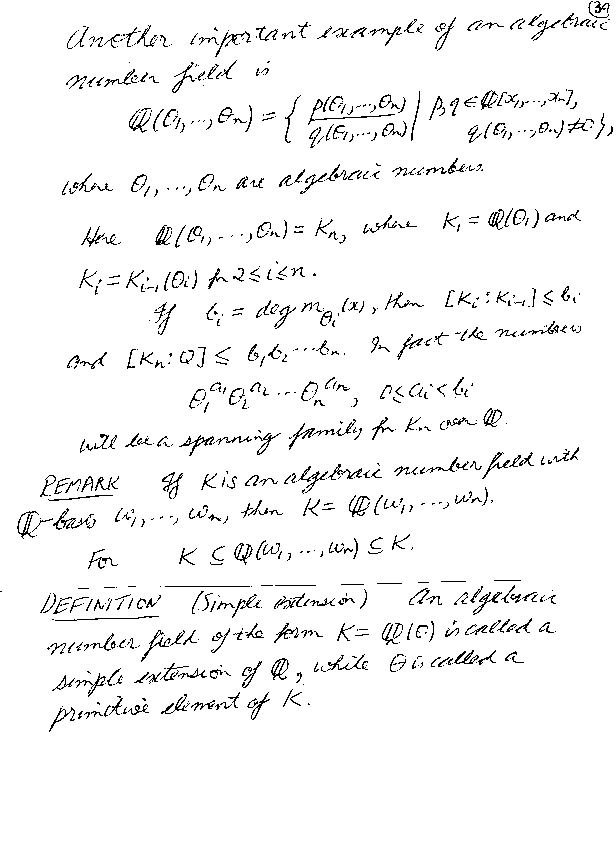 39
Another important example of an algebraic
number field is
ℚ(θ₁,...,θₙ) = { p(θ₁,...,θₙ)/q(θ₁,...,θₙ) | p,q ∈ ℚ[x₁,...,xₙ], q(θ₁,...,θₙ) ≠ 0 },
where θ₁, ..., θₙ are algebraic numbers.
Here ℚ(θ₁, ..., θₙ) = Kₙ, where K₁ = ℚ(θ₁) and
Kᵢ = Kᵢ₋₁(θᵢ) for 2 ≤ i ≤ n.
If bᵢ = deg m_θᵢ(x), then [Kᵢ : Kᵢ₋₁] ≤ bᵢ
and [Kₙ : Q] ≤ b₁b₂ ... bₙ. In fact the numbers
θ₁^a₁ θ₂^a₂ ... θₙ^aₙ, 0 ≤ aᵢ < bᵢ
will be a spanning family for Kₙ over ℚ.
REMARK If K is an algebraic number field with
ℚ-basis w₁, ..., wₙ, then K = ℚ(w₁, ..., wₙ).
For K ⊆ ℚ(w₁, ..., wₙ) ⊆ K.
DEFINITION (Simple extension) An algebraic
number field of the form K = ℚ(θ) is called a
simple extension of ℚ, while θ is called a
primitive element of K.